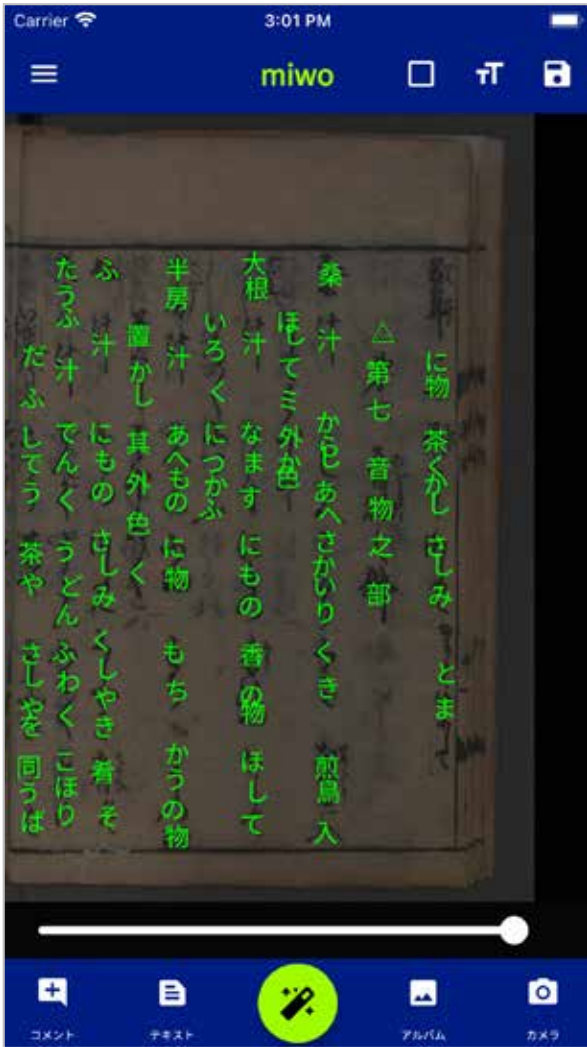 Carrier 3:01 PM
miwo
に物 茶くかし さしみ とま
△第七 音物之部
桑 汁 からしあへ さかいり くき 煎鳥 入
ほしてミ 外か色
大根 汁 なます にもの 香の物 ほして
いろく につかふ
半房 汁 あへもの に物 もち かうの物
置かし 其外色く
ふ 汁 にもの さしみ くしやき 肴 そ
たうふ 汁 でんく うどん ふわく こほり
だふ してう 茶や さしやを 同うば
コメント
テキスト
アルバム
カメラ